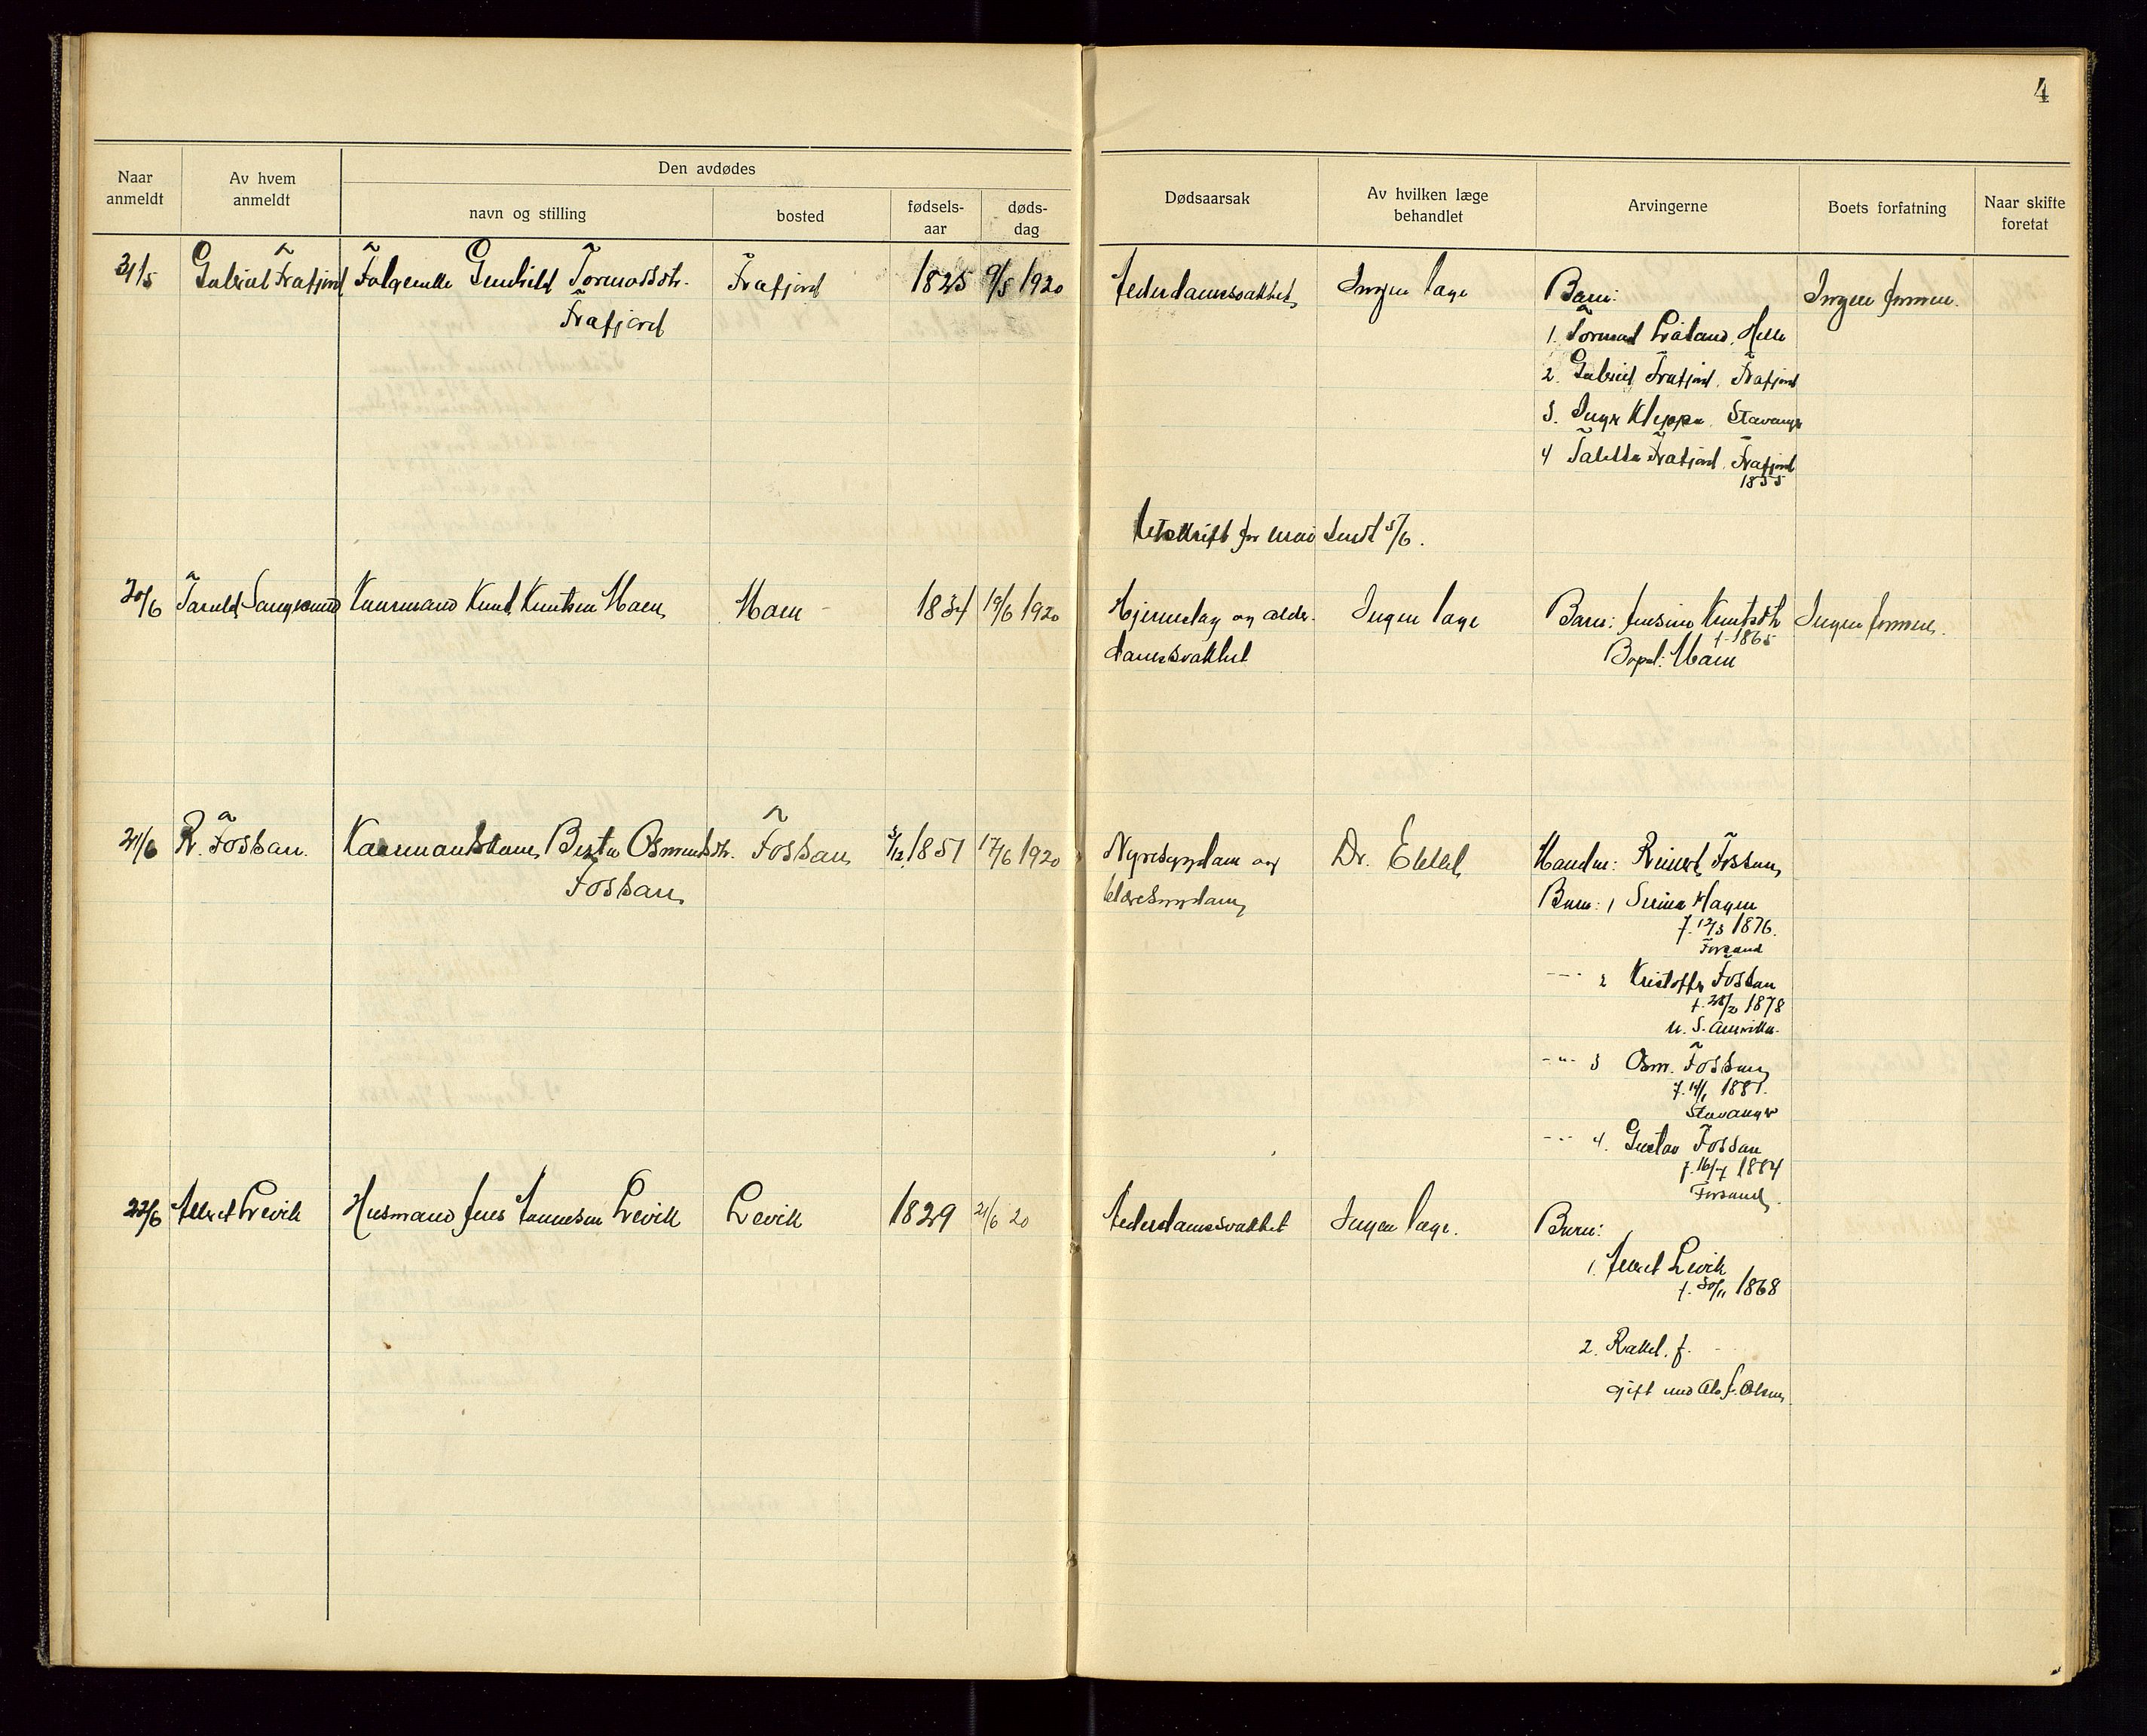 4
Naar anmeldt
Av hvem anmeldt
Den avdødes
navn og stilling
bosted
fødsels-aar
døds-dag
Dødsaarsak
Av hvilken læge behandlet
Arvingerne
Boets forfatning
Naar skifte foretat
31/5 Gabriel Frafjord Folgeenke Gunhild Tormodsdtr. Frafjord 1825 9/5 1920 Alderdomssvakhet Ingen læge Barn: Ingen formue.
Frafjord
1. Tormod Eraland, Helle
2. Gabriel Frafjord, Frafjord
3. Inger Kleppa, Stavanger
4 Taletta Frafjord, Frafjord
1855
Utskrift for mai sendt 5/6.
20/6 Tarald Kaarmand Knud Knutsen Haen Haen 1834 19/6 1920 Hjerneslag og alder- Ingen læge Barn: Jensine Knutsdtr Ingen formue.
domssvakhet
f. 1865
Bopel: Haen
21/6 R. Fossan. Kaarmandskone Berta Osmundsdtr. Fossan 3/12 1851 17/6 1920 Nyresygdom og Dr. Manden: Reinert Fossan
Fossan
blæresygdom
Barn: 1 Serina Hagen
f. 12/3 1876.
Forsand
-"- 2 Kristoffer Fossan
f. 28/2 1878
U. S. Amerika.
-"- 3 Osm. Fossan
f. 14/1 1881.
Stavanger
-"- 4. Gustav Fossan
f. 16/7 1884
Forsand.
22/6 Albret Levik Husmand Jens Hannesen Levik Levik 1829 21/6 20 Alderdomssvakhet Ingen læge. Barn:
1. Albret Levik
f. 30/11 1868
2. Rakel. f.
gift med Ole J. Olsen